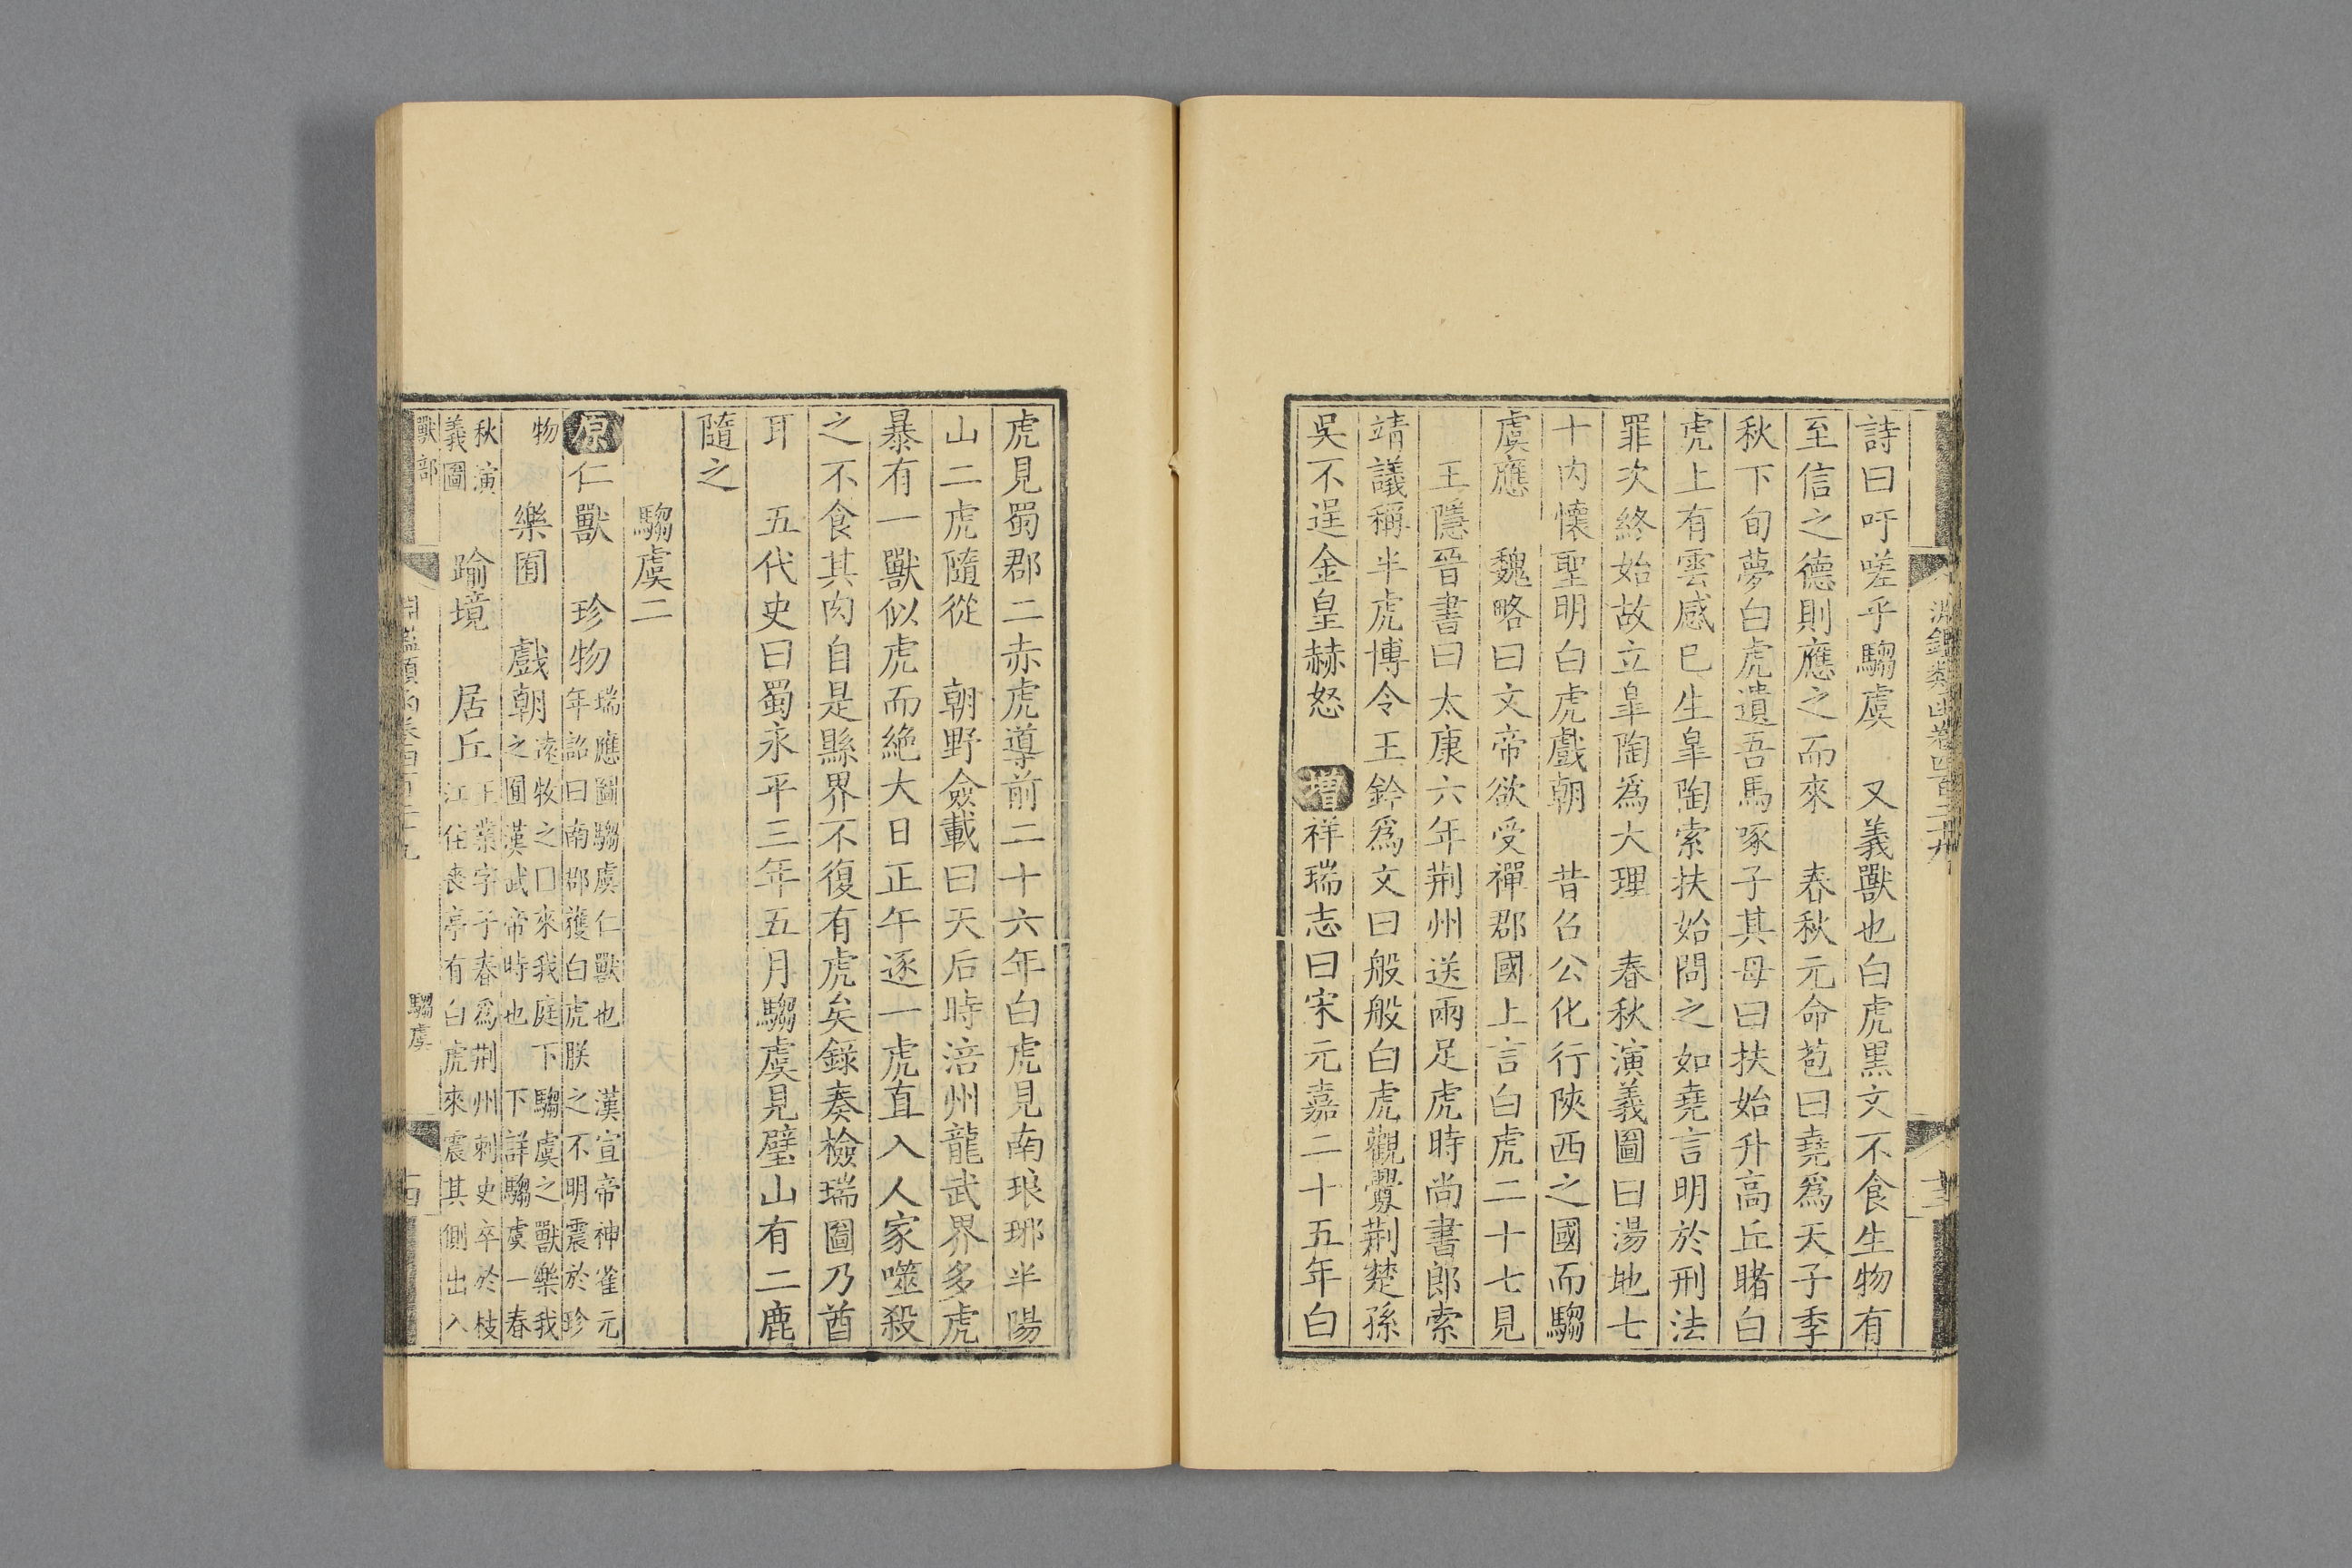 詩曰吁嗟乎騶虞　又義獸也白虎黑文不食生物有
至信之德則應之而來　春秋元命苞曰堯爲天子季
秋下旬夢白虎遺吾馬啄子其母曰扶始升高丘睹白
虎上有雲感已生臯陶索扶始問之如堯言明於刑法
罪次終始故立臯陶爲大理　春秋演義圖曰湯地七
十內懷聖明白虎戲朝　昔召公化行陝西之國而騶
虞應　魏略曰文帝欲受禪郡國上言白虎二十七見
王隱晉書曰太康六年荆州送兩足虎時尚書郎索
靖議稱半虎博令王鈴爲文曰般般白虎觀釁荆楚孫
吳不逞金皇赫怒　增祥瑞志曰宋元嘉二十五年白
虎見蜀郡二赤虎導前二十六年白虎見南琅琊半陽
山二虎隨從　朝野僉載曰天后時涪州龍武界多虎
暴有一獸似虎而絶大日正午逐一虎直入人家噬殺
之不食其肉自是縣界不復有虎矣錄奏檢瑞圖乃酋
耳　五代史曰蜀永平三年五月騶虞見璧山有二鹿
隨之
騶虞二
原仁獸　珍物瑞應圖騶虞仁獸也　漢宣帝神雀元
年詔曰南郡獲白虎朕之不明震於珍
物　樂囿　戲朝遠牧之囗來我庭下　騶虞之獸樂我
之囿漢武帝時也　下詳騶虞一春
秋演
義圖　踰境　居丘王業字子春爲荆州刺史卒於枝
江住喪亭有白虎來震其側出入
獸部
淵鑑類函卷四百二十九
騶虞
十四